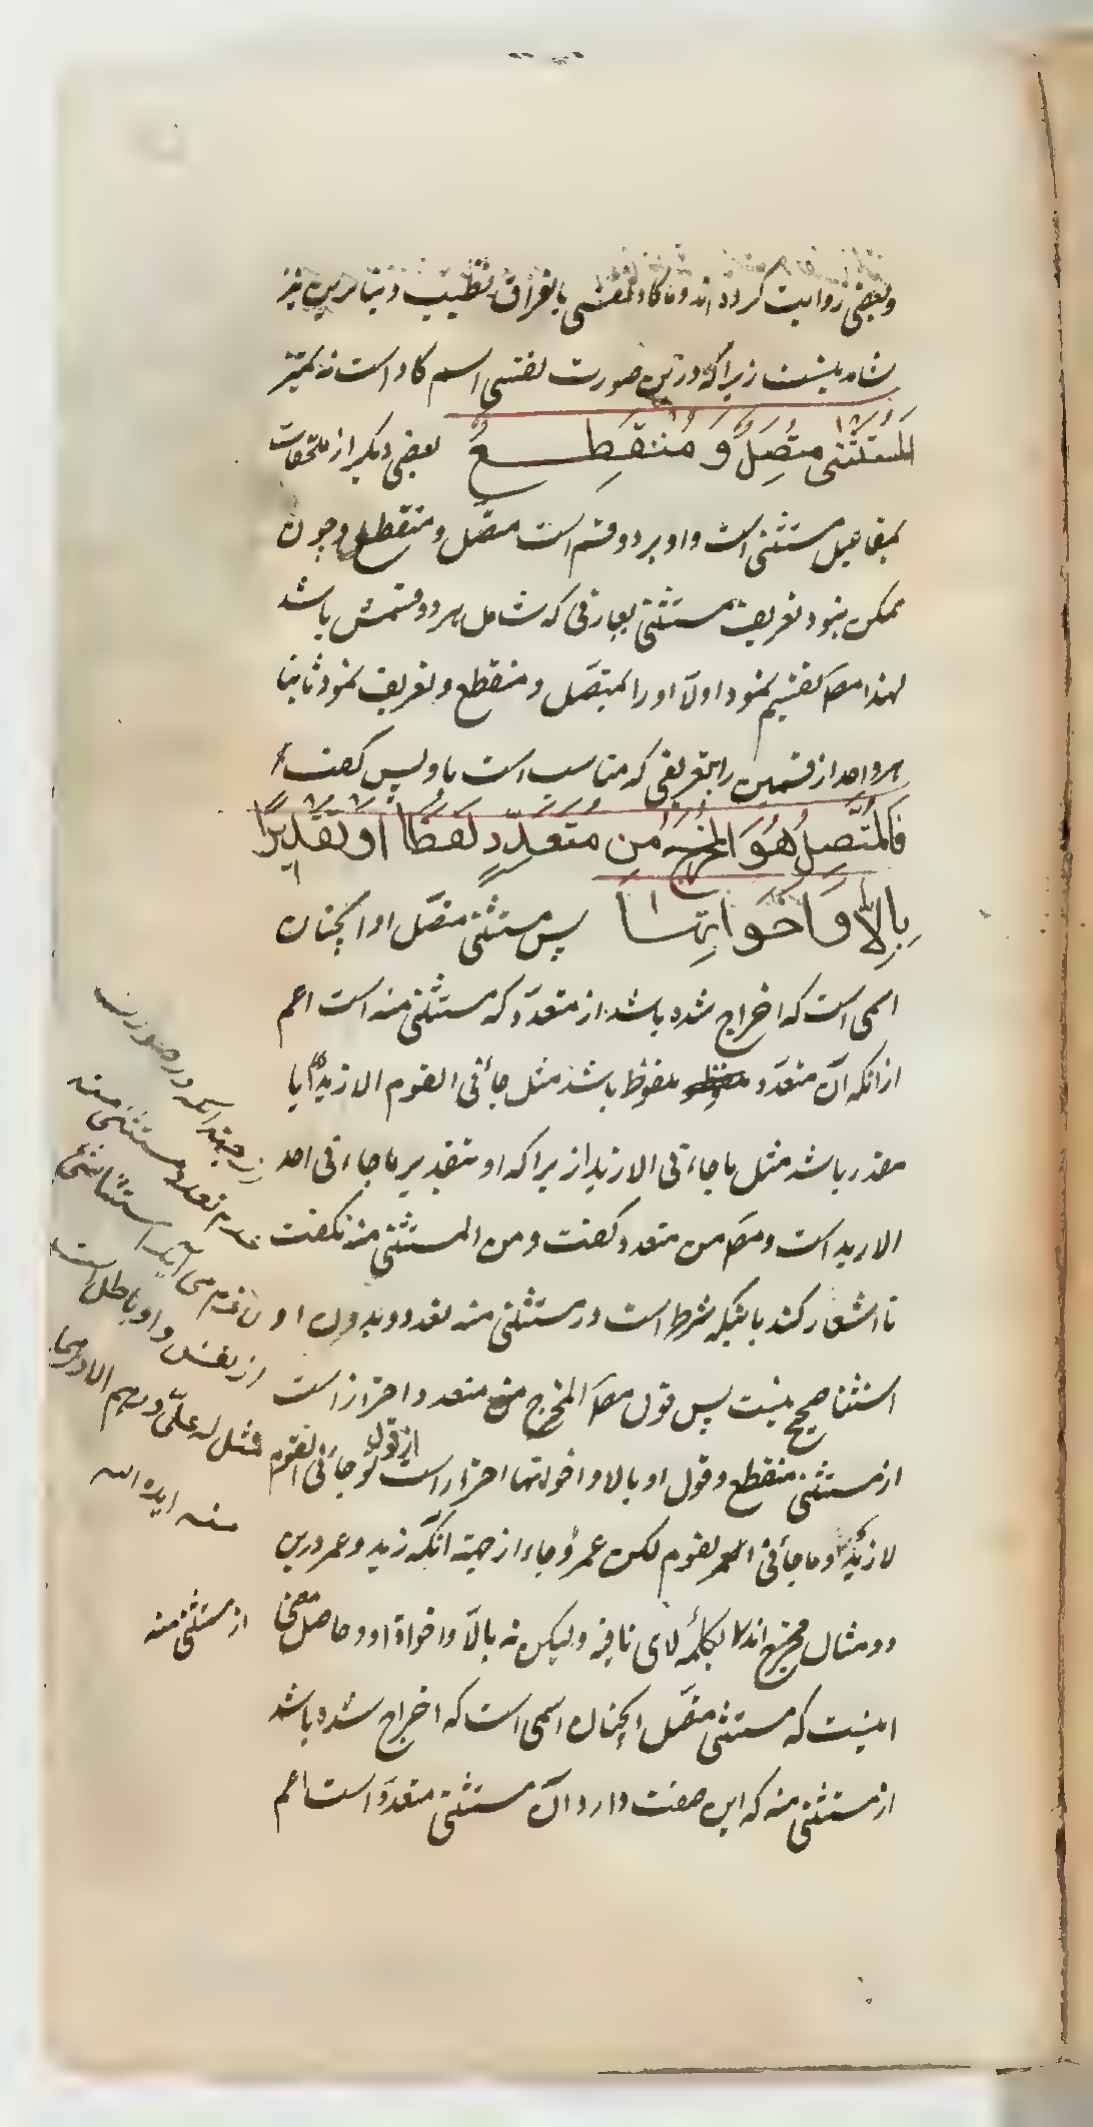 وبعضی روایت کرده اند وما کاد نفسی بالفراق تطیب وبنابرین نیز
شاهد نیست زیرا که درین صورت نفسی اسم کاد است نه تمیز
المستثنی متصل و منقطع بعضی دیکر از ملحقات
بمفاعیل مستثنی است واو بر دو قسم است متصل و منقطع وچون
ممکن نبود تعریف مستثنی بعبارتی که شامل هر دو قسمش باشد
لهذا مصـ تقسیم نمود اولا او را بمتصل و منقطع وتعریف نمود ثانیا
هر واحد از قسمین را بتعریفی که مناسب است باو پس کفت
فالمتصل هو المخرج من متعدد لفظا او تقدیرا
بالا واخواتها پس مستثنی متصل او انچنان
اسمی است که اخراج شده باشد از متعدد که مستثنی منه است اعم
از انکه آن متعدد ملفوظ باشد مثل جائنی القوم الا زیدا یا
مقدر باشد مثل ما جاءنی الا زیدا زیرا که او بتقدیر ما جاءنی احد
الا زید است ومصـ من متعدد کفت ومن المستثنی منه نکفت
تا اشعار کند باینکه شرط است در مستثنی منه تعدد وبدون او
استثنا صحیح نیست پس قول مصـ المخرج من متعدد احتراز است
از مستثنی منقطع وقول او بالا واخواتها احتراز است از قول تو جائنی القوم
لا زید وما جائنی القوم لکن عمرو جاء از جهة انکه زید وعمرو درین
دو مثال مخرج اند بکلمهٔ لای نافیه ولیکن نه بالا واخواة او وحاصل معنی
اینست که مستثنی متصل انچنان اسمی است که اخراج شده باشد
از مستثنی منه که این صفت دارد آن مستثنی متعدد است اعم
از جهة انکه در صورت
عدم تعدد مستثنی منه
لازم می آید استثنا شئ
از نفس واو باطل است
مثل له علی درهم الا درهما
منه ایده الله
از مستثنی منه